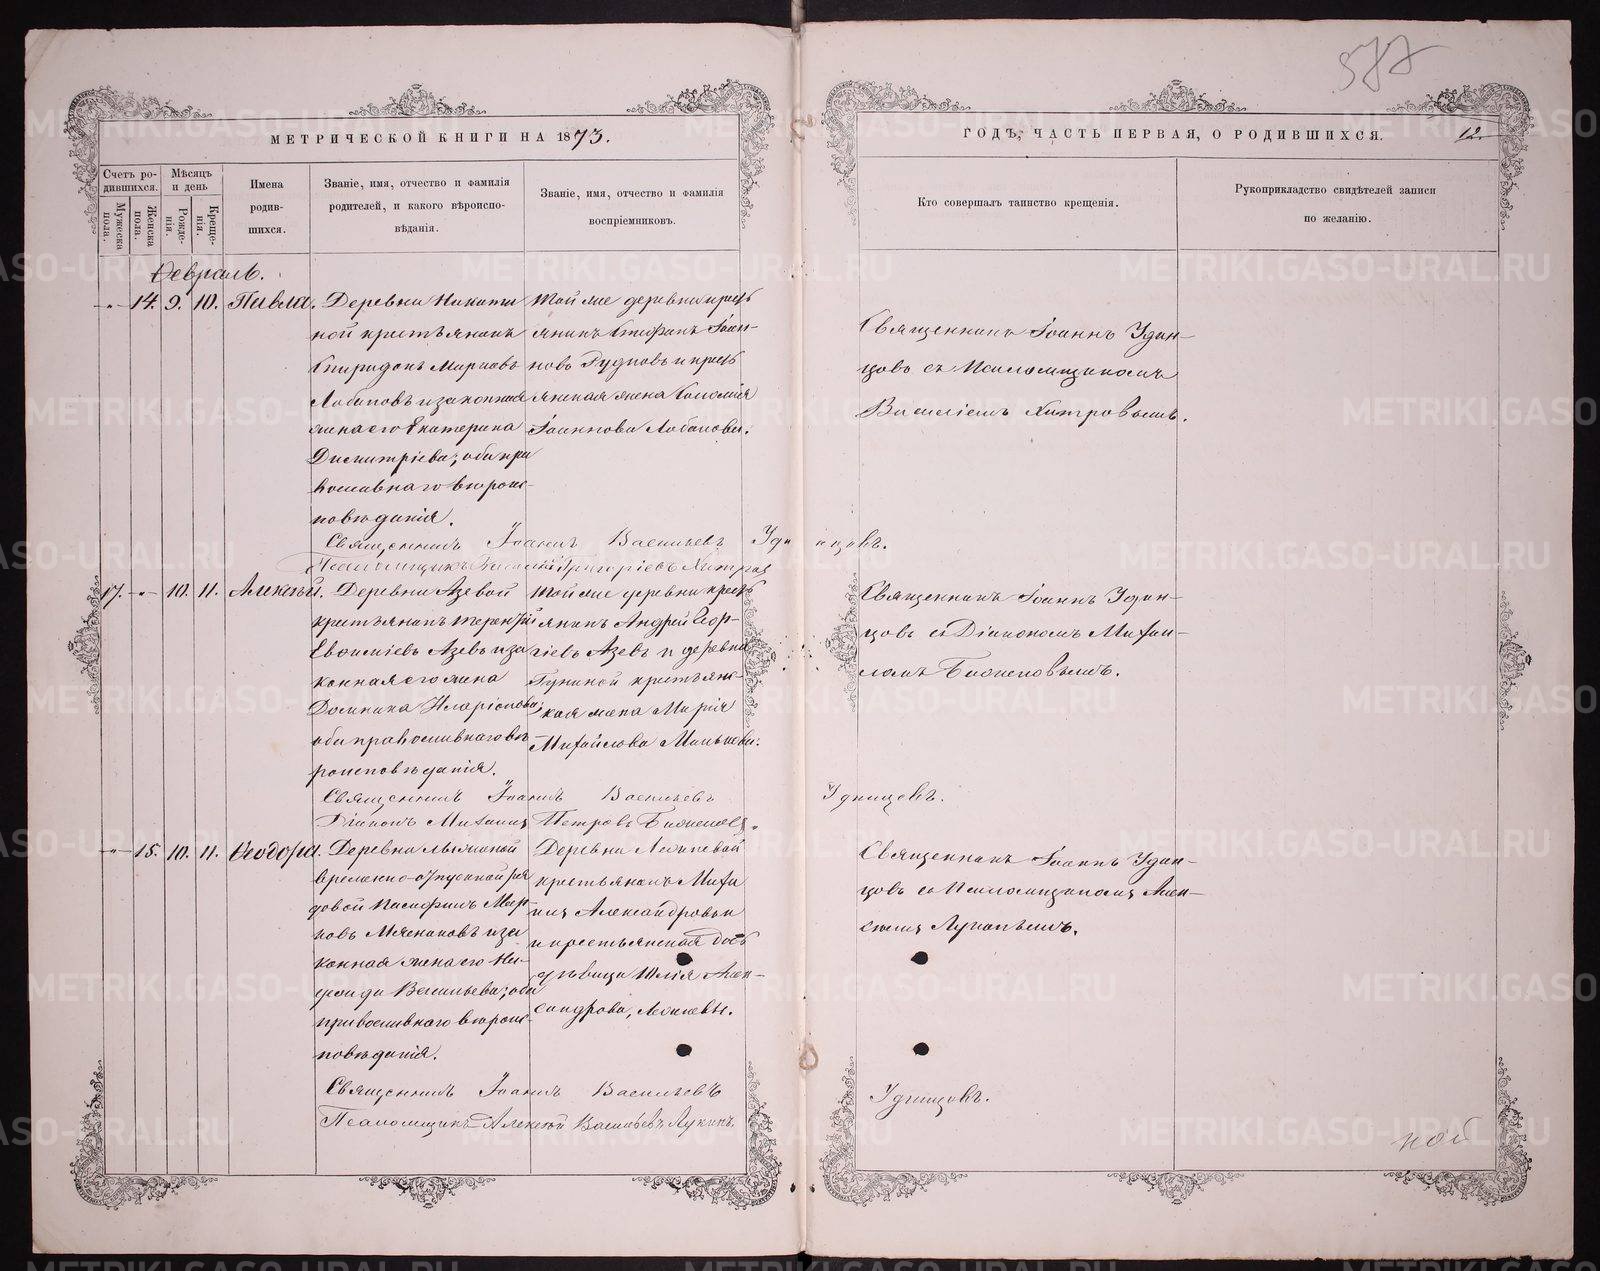 577
МЕТРИЧЕСКОЙ КНИГИ НА 1873.
ГОДЪ, ЧАСТЬ ПЕРВАЯ, О РОДИВШИХСЯ.
12.
Счетъ ро-
дившихся.
Мужеска
пола.
Женска
пола.
Мѣсяцъ
и день
Рожде-
нія.
Креще-
нія.
Имена
родив-
шихся.
Званіе, имя, отчество и фамилія
родителей, и какого вѣроиспо-
вѣданія.
Званіе, имя, отчество и фамилія
воспріемниковъ.
Кто совершалъ таинство крещенія.
Рукоприкладство свидѣтелей записи
по желанію.
Февраль.
14. 9. 10. Павла.
Деревни Никити
ной крестьянинъ
Спиридонъ Марковъ
Лобановъ и законная
жена его Екатерина
Димитріева; оба пра
вославнаго вѣроис-
повѣданія.
Той же деревни крест
янинъ Стефанъ Іоан-
новъ Рудновъ и крест
янская жена
Іоаннова Лобанова.
Священникъ Іоаннъ Удин-
цовъ съ Псаломщикомъ
Василіемъ Хитровымъ.
Священникъ Іоаннъ Васильевъ Удинцовъ.
Псаломщикъ Василій Григорьевъ Хитров
17. 10. 11. Алексѣй.
Деревни Азевой
крестьянинъ Терентій
Евѳиміевъ Азевъ и за
конная его жена
Домника Иларіонова;
оба православнаго вѣ
роисповѣданія.
Той же деревни крест
янинъ Андрей Геор-
гіевъ Азевъ и деревни
крестьян-
ская жена Марія
Михайлова Манькова.
Священникъ Іоаннъ Удин-
цовъ съ Діакономъ Михаи-
ломъ
Священникъ Іоаннъ Васильевъ Удинцовъ.
Діаконъ Михаилъ Петровъ
15. 10. 11. Ѳеодора.
Деревни
временно-отпускной ря
довой
Мясниковъ и за
конная жена его Ни-
Васильева; оба
православнаго вѣроис-
повѣданія.
Деревни
крестьянинъ Миха
илъ Александровъ
и крестьянская дочь
дѣвица Юлія Алек-
сандрова,
Священникъ Іоаннъ Удин-
цовъ съ Псаломщикомъ Алек-
сѣемъ Лукинымъ.
Священникъ Іоаннъ Васильевъ Удинцовъ.
Псаломщикъ Алексѣй Васильевъ Лукинъ.
METRIKI.GASO-URAL.RU